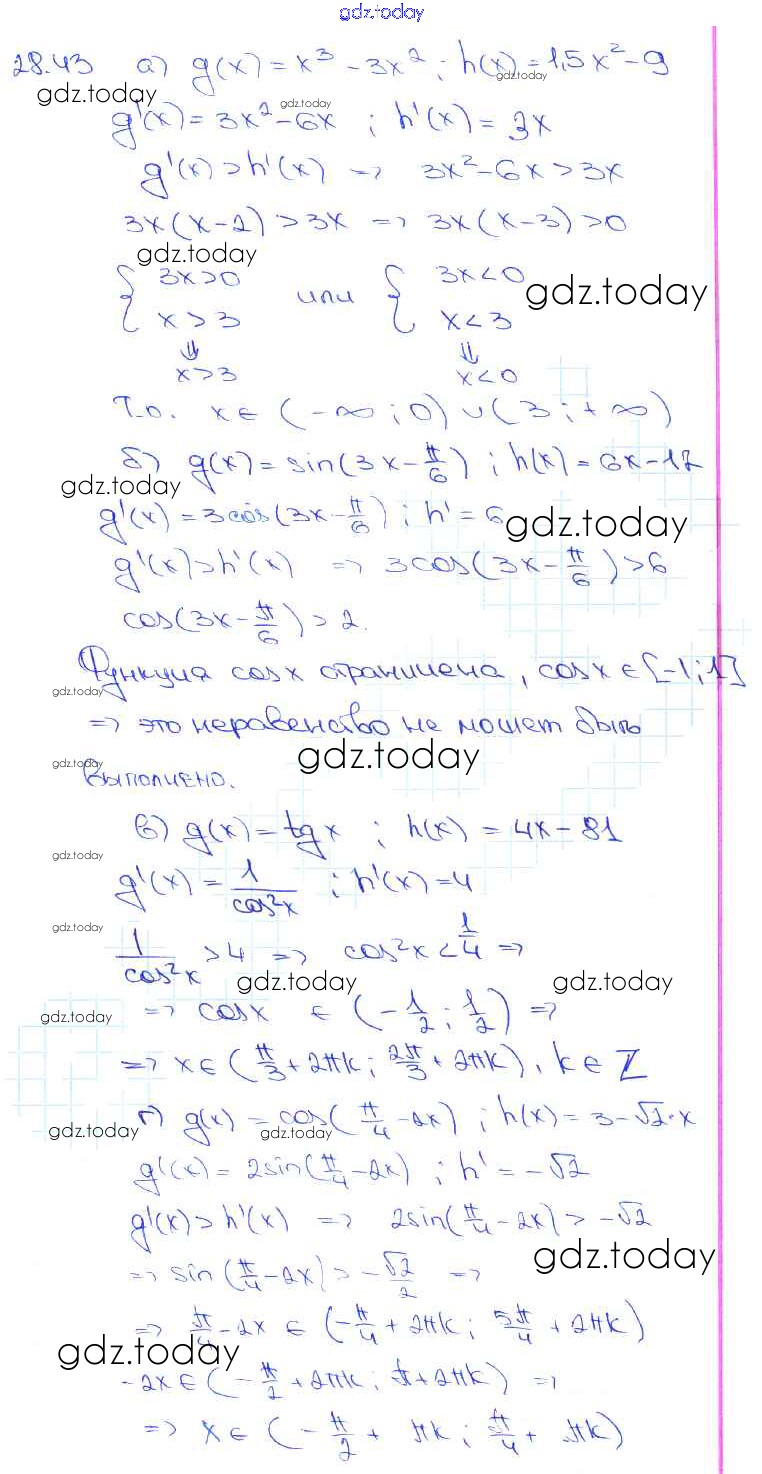 gdz.today
28.43 а) g(x) = x³ - 3x² ; h(x) = 1,5x² - 9
gdz.today
gdz.today
gdz.today
g'(x) = 3x² - 6x ; h'(x) = 3x
g'(x) > h'(x) => 3x² - 6x > 3x
3x(x-2) > 3x => 3x(x-3) > 0
gdz.today
{ 3x > 0 или { 3x < 0
gdz.today
x > 3 x < 3
⇓ ⇓
x > 3 x < 0
Т.о. x ∈ (-∞ ; 0) ∪ (3 ; +∞)
б) g(x) = sin(3x - π/6) ; h(x) = 6x - 12
gdz.today
g'(x) = 3cos(3x - π/6) ; h' = 6
gdz.today
g'(x) > h'(x) => 3cos(3x - π/6) > 6
cos(3x - π/6) > 2.
Функция cosx ограничена, cosx ∈ [-1; 1]
gdz.today
=> это неравенство не может быть
gdz.today
gdz.today
выполнено.
в) g(x) = tgx ; h(x) = 4x - 81
gdz.today
g'(x) = 1/cos²x ; h'(x) = 4
gdz.today
1/cos²x > 4 => cos²x < 1/4 =>
gdz.today gdz.today
=> cosx ∈ (-1/2 ; 1/2) =>
gdz.today
=> x ∈ (π/3 + 2πk ; 2π/3 + 2πk), k ∈ Z
г) g(x) = cos(π/4 - 2x) ; h(x) = 3 - √2·x
gdz.today gdz.today
g'(x) = 2sin(π/4 - 2x) ; h' = -√2
g'(x) > h'(x) => 2sin(π/4 - 2x) > -√2
gdz.today
=> sin(π/4 - 2x) > -√2/2 =>
=> π/4 - 2x ∈ (-π/4 + 2πk ; 5π/4 + 2πk)
gdz.today
-2x ∈ (-π/2 + 2πk ; π + 2πk) =>
=> x ∈ (-π/2 + πk ; π/4 + πk)